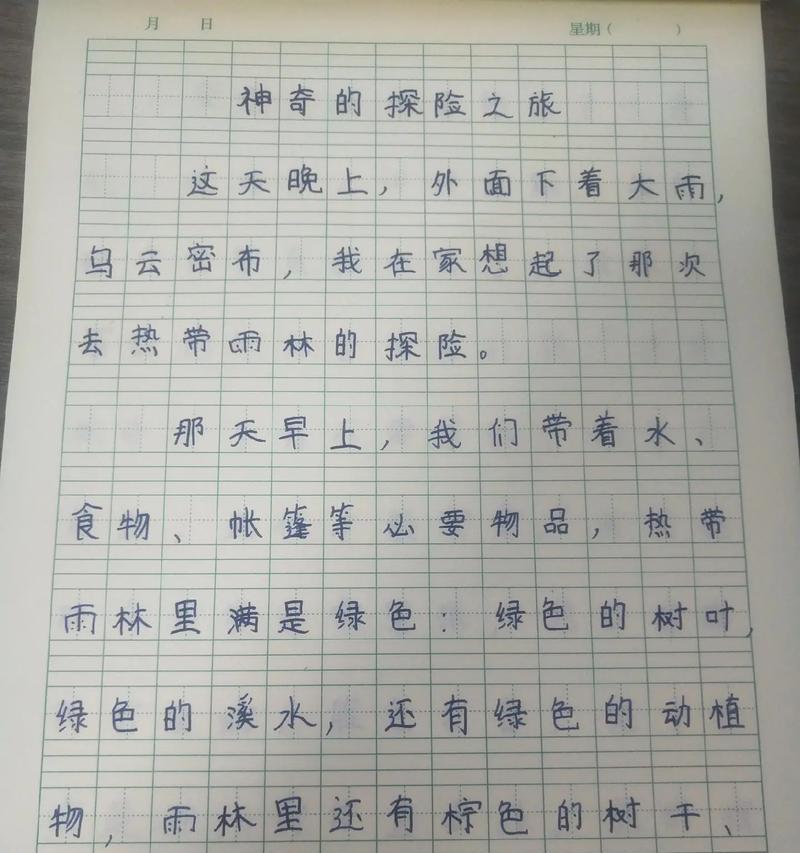 月 日 星期( )
神奇的探险之旅
这天晚上，外面下着大雨，
乌云密布，我在家想起了那次
去热带雨林的探险。
那天早上，我们带着水、
食物、帐篷等必要物品，热带
雨林里满是绿色：绿色的树叶，
绿色的溪水，还有绿色的动植
物，雨林里还有棕色的树干、